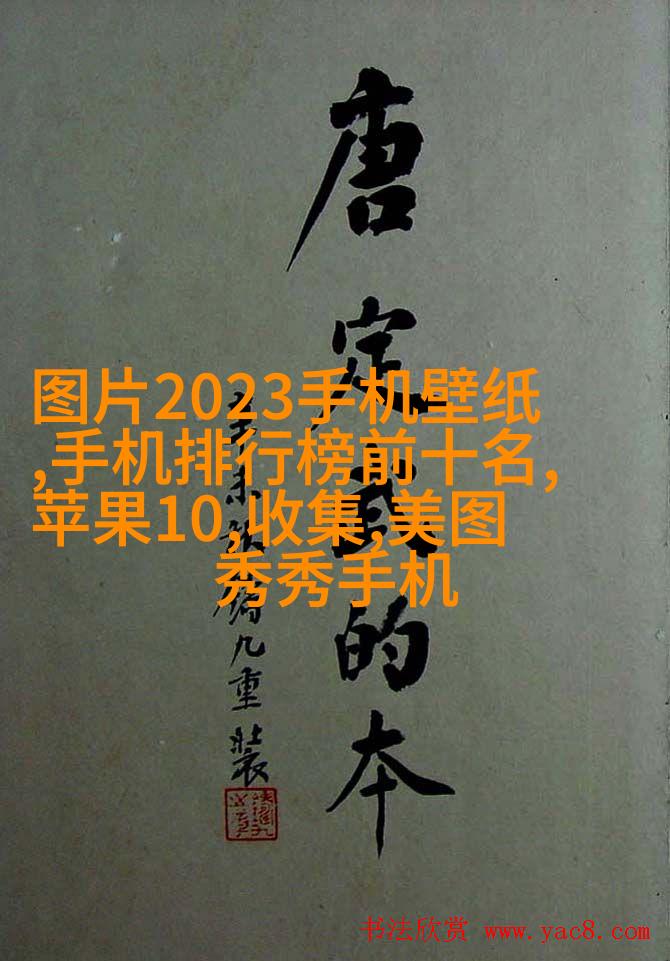 唐定武的本
图片2023手机壁纸
,手机排行榜前十名,
苹果10,收集,美图
秀秀手机
九重装
书法欣赏 www.yac8.com